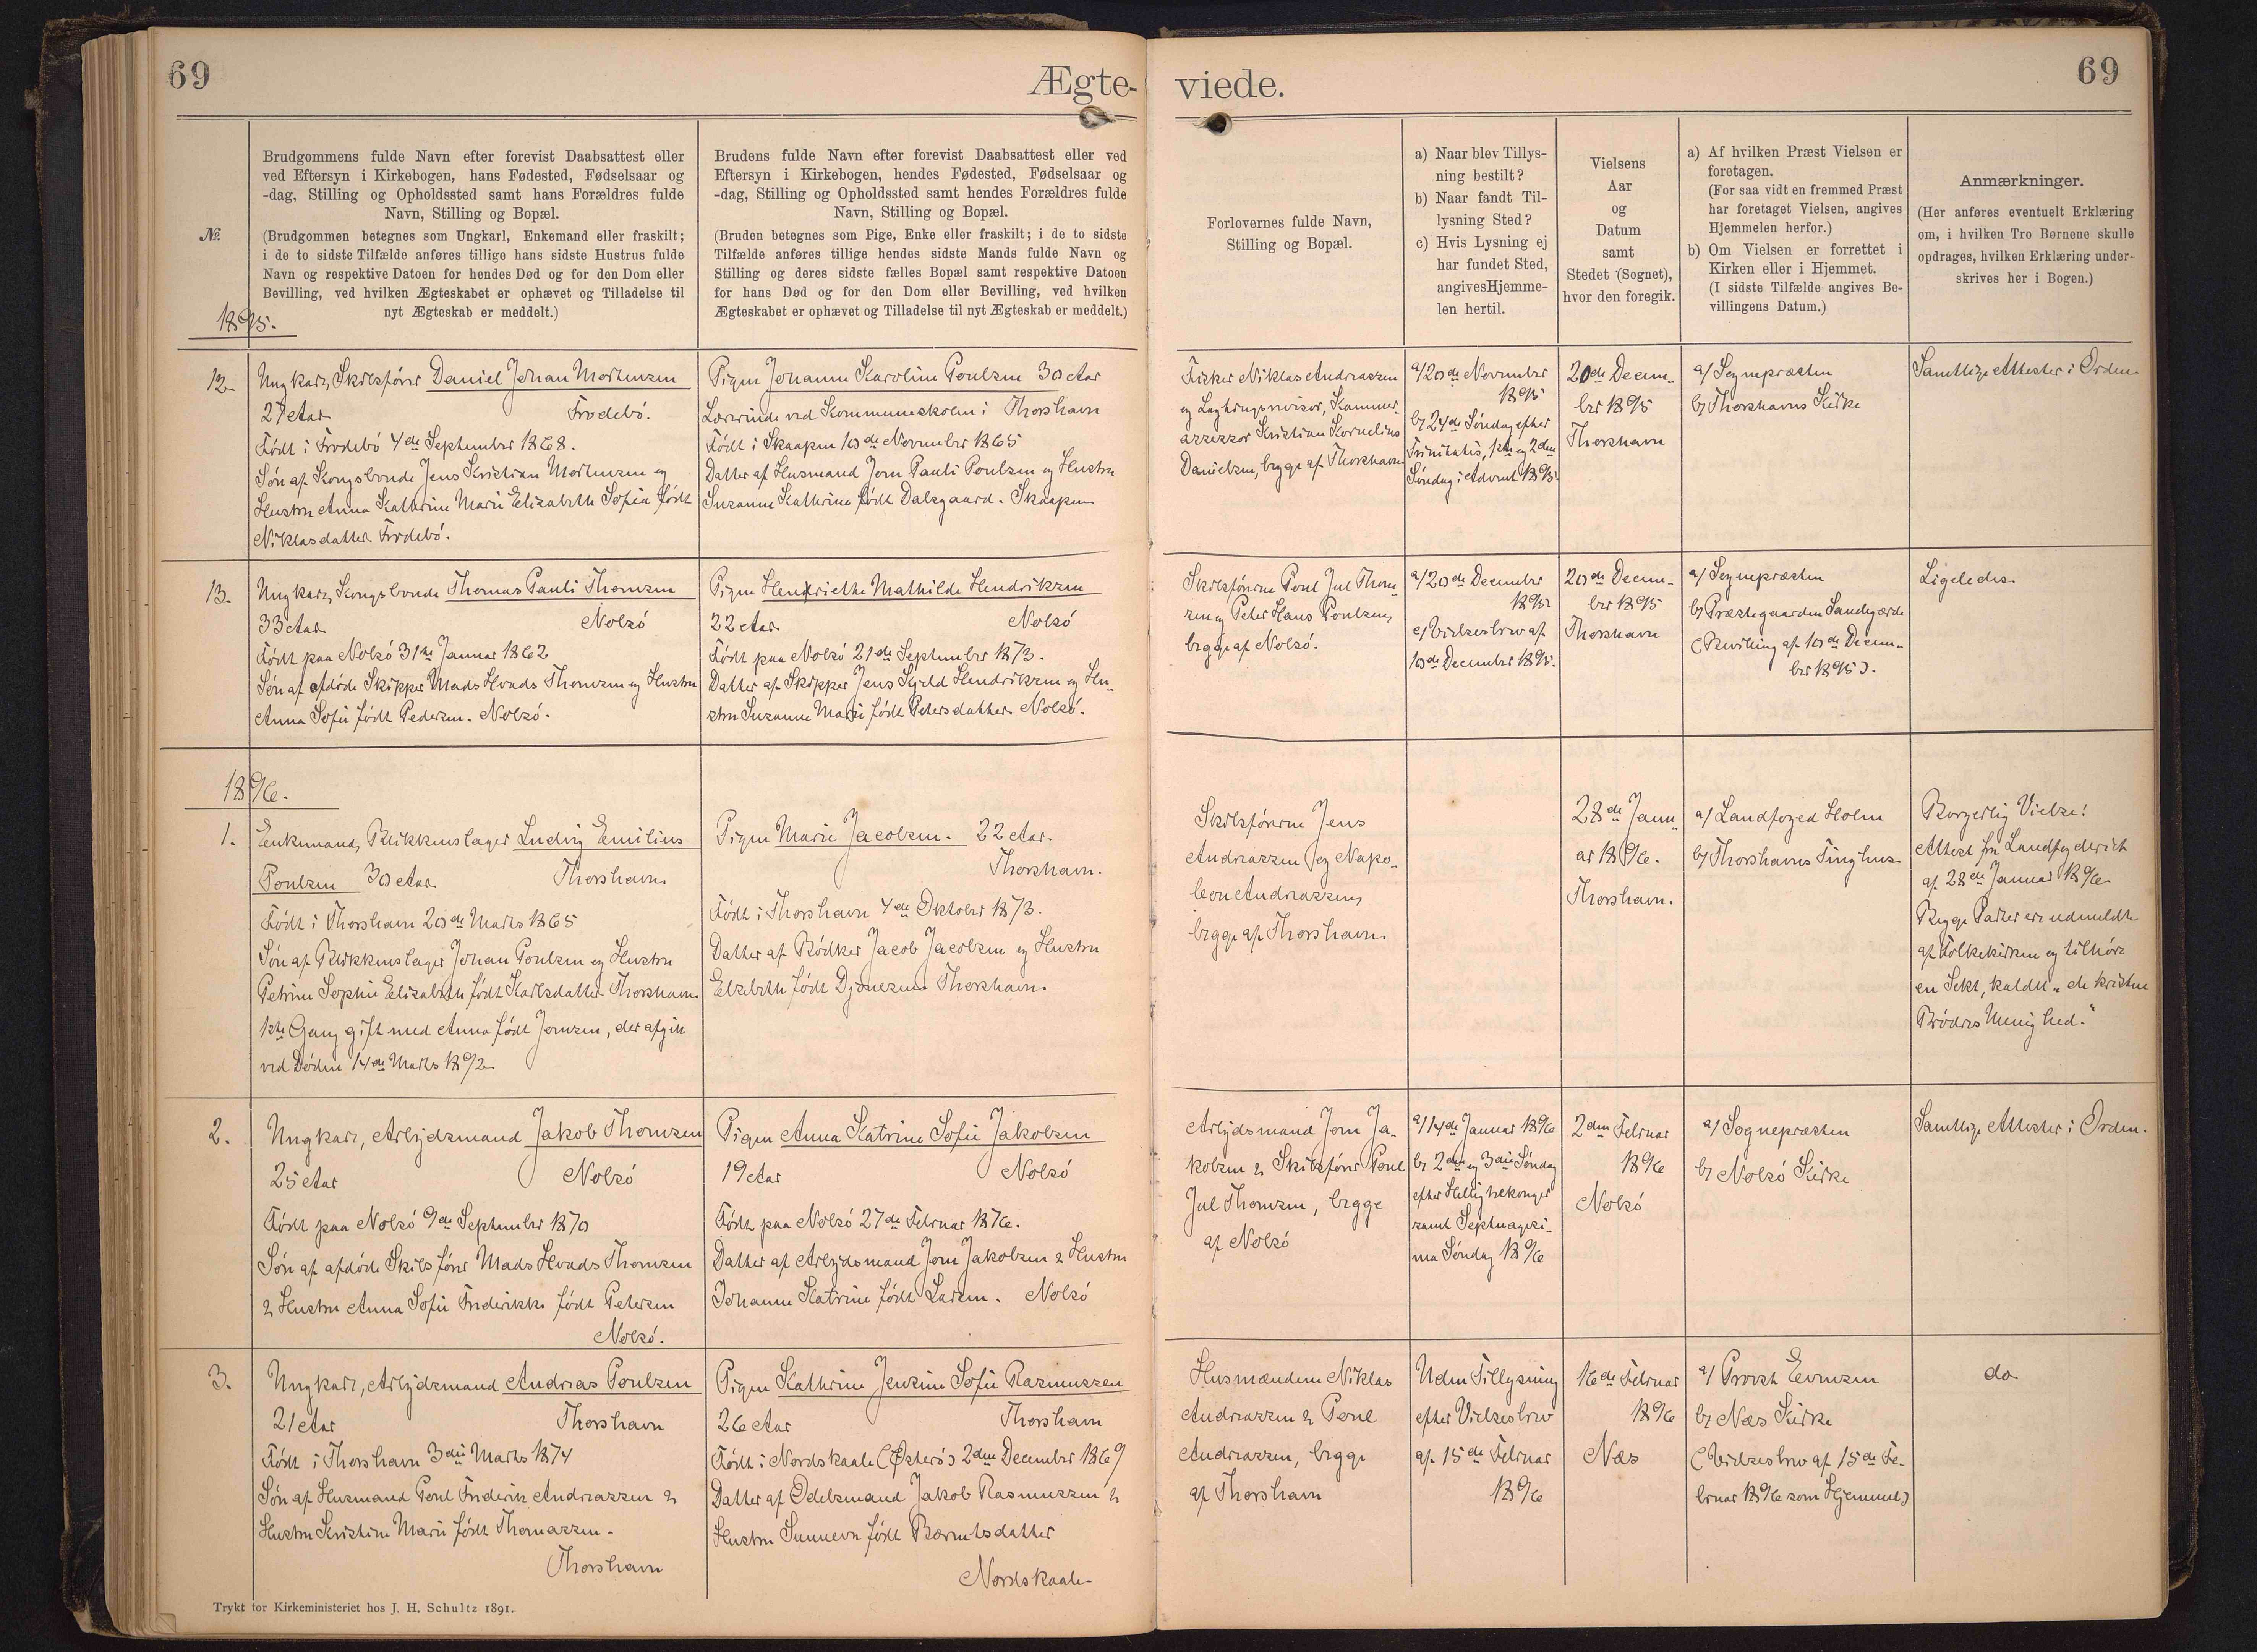 69
Ægte-
viede.
69
No.
Brudgommens fulde Navn efter forevist Daabsattest eller
ved Eftersyn i Kirkebogen, hans Fødested, Fødselsaar og
-dag, Stilling og Opholdssted samt hans Forældres fulde
Navn, Stilling og Bopæl.
(Brudgommen betegnes som Ungkarl, Enkemand eller fraskilt;
i de to sidste Tilfælde anføres tillige hans sidste Hustrus fulde
Navn og respektive Datoen for hendes Død og for den Dom eller
Bevilling, ved hvilken Ægteskabet er ophævet og Tilladelse til
nyt Ægteskab er meddelt.)
Brudens fulde Navn efter forevist Daabsattest eller ved
Eftersyn i Kirkebogen, hendes Fødested, Fødselsaar og
-dag, Stilling og Opholdssted samt hendes Forældres fulde
Navn, Stilling og Bopæl.
(Bruden betegnes som Pige, Enke eller fraskilt; i de to sidste
Tilfælde anføres tillige hendes sidste Mands fulde Navn og
Stilling og deres sidste fælles Bopæl samt respektive Datoen
for hans Død og for den Dom eller Bevilling, ved hvilken
Ægteskabet er ophævet og Tilladelse til nyt Ægteskab er meddelt.)
Forlovernes fulde Navn,
Stilling og Bopæl.
a) Naar blev Tillys-
ning bestilt?
b) Naar fandt Til-
lysning Sted?
c) Hvis Lysning ej
har fundet Sted,
angives Hjemme-
len hertil.
Vielsens
Aar
og
Datum
samt
Stedet (Sognet),
hvor den foregik.
a) Af hvilken Præst Vielsen er
foretagen.
(For saa vidt en fremmed Præst
har foretaget Vielsen, angives
Hjemmelen herfor.)
b) Om Vielsen er forrettet i
Kirken eller i Hjemmet.
(I sidste Tilfælde angives Be-
villingens Datum.)
Anmærkninger.
(Her anføres eventuelt Erklæring
om, i hvilken Tro Børnene skulle
opdrages, hvilken Erklæring under-
skrives her i Bogen.)
1895.
12.
Ungkarl, Skibsfører Daniel Johan Mortensen
27 Aar Frodebø.
Født i Frodebø 4de September 1868.
Søn af Kongsbonde Jens Kristian Mortensen og
Hustru Anna Kathrine Marie Elisabeth Sofia født
Niklasdatter. Frodebø.
Pigen Johanne Karoline Poulsen 30 Aar
Lærerinde ved Kommuneskolen i Thorshavn
Født i Skaapen 10de November 1865
Datter af Husmand Joen Pauli Poulsen og Hustru
Susanne Kathrine født Dalsgaard. Skaapen
Fisker Niklas Andreassen
og Lagtingsrevisor, Kammer-
assessor Kristian Kornelius
Danielsen, begge af Thorshavn
a/ 20de November
1895
b/ 24de Søndag efter
Trinitatis, 1ste og 2den
Søndag i Advent 1895.
20de Decem-
ber 1895
Thorshavn
a/ Sognepræsten
b/ Thorshavns Kirke
Samtlige Attester i Orden
13.
Ungkarl, Kongsbonde Thomas Pauli Thomsen
33 Aar Nolsø
Født paa Nolsø 31te Januar 1862
Søn af afdøde Skipper Mads Hvads Thomsen og Hustru
Anna Sofie født Pedersen. Nolsø.
Pigen Henriette Mathilde Hendriksen
22 Aar Nolsø
Født paa Nolsø 21de September 1873.
Datter af Skipper Jens Kjeld Hendriksen og Hu-
stru Susanne Marie født Petersdatter Nolsø.
Skibsførerne Poul Jul Thom-
sen og Peter Hans Poulsen,
begge af Nolsø.
a/ 20de December
1895
c/ Vielsesbrev af
10de December 1895.
20de Decem-
ber 1895
Thorshavn
a/ Sognepræsten
b/ Præstegaarden Sandegærde
(Bevilling af 10de Decem-
ber 1895).
Ligeledes
1896.
1.
Enkemand, Blikkenslager Ludvig Emilius
Poulsen 30 Aar Thorshavn
Født i Thorshavn 20de Marts 1865
Søn af Blikkenslager Johan Poulsen og Hustru
Petrine Sophie Elisabeth født Karlsdatter Thorshavn.
1ste Gang gift med Anna født Joensen, der afgik
ved Døden 14de Marts 1892
Pigen Marie Jacobsen. 22 Aar.
Thorshavn.
Født i Thorshavn 4de Oktober 1873.
Datter af Bødker Jacob Jacobsen og Hustru
Elsebeth født Djonesen Thorshavn.
Skibsførerne Jens
Andreassen og Napo-
leon Andreassen,
begge af Thorshavn
28de Janu-
ar 1896.
Thorshavn.
a/ Landfoged Holm
b/ Thorshavns Tinghus
Borgerlig Vielse!
Attest fra Landfogderiet
af 28de Januar 1896
Begge Parter ere udmeldte
af Folkekirken og tilhøre
en Sekt, kaldet "de kristne
Brødres Menighed."
2.
Ungkarl, Arbejdsmand Jakob Thomsen
25 Aar Nolsø
Født paa Nolsø 9de September 1870
Søn af afdøde Skibsfører Mads Hvads Thomsen
& Hustru Anna Sofie Frederikke født Petersen
Nolsø.
Pigen Anna Katrine Sofie Jakobsen
19 Aar Nolsø
Født paa Nolsø 27de Februar 1876.
Datter af Arbejdsmand Joen Jakobsen & Hustru
Johanne Katrine født Larsen. Nolsø
Arbejdsmand Joen Ja-
kobsen & Skibsfører Poul
Jul Thomsen, begge
af Nolsø
a/ 14de Januar 1896
b/ 2den og 3die Søndag
efter Hellig trekonger
samt Septuagesi-
ma Søndag 1896
2den Februar
1896
Nolsø
a/ Sognepræsten
b/ Nolsø Kirke
Samtlige Attester i Orden.
3.
Ungkarl, Arbejdsmand Andreas Poulsen
21 Aar Thorshavn
Født i Thorshavn 3die Marts 1874
Søn af Husmand Poul Frederik Andreassen &
Hustru Kristine Marie født Thomassen.
Thorshavn
Pigen Kathrine Jensine Sofie Rasmussen
26 Aar Thorshavn
Født i Nordskaale (Østerø) 2den December 1869
Datter af Odelsmand Jakob Rasmussen &
Hustru Sunneva født Berentsdatter
Nordskaale
Husmændene Niklas
Andreassen & Poul
Andreassen, begge
af Thorshavn
Uden Tillysning
efter Vielsesbrev
af 15de Februar
1896
16de Februar
1896
Næs
a/ Provst Evensen
b/ Næs Kirke
(Vielsesbrev af 15de Fe-
bruar 1896 som Hjemmel)
do
Trykt for Kirkeministeriet hos J. H. Schultz 1891.